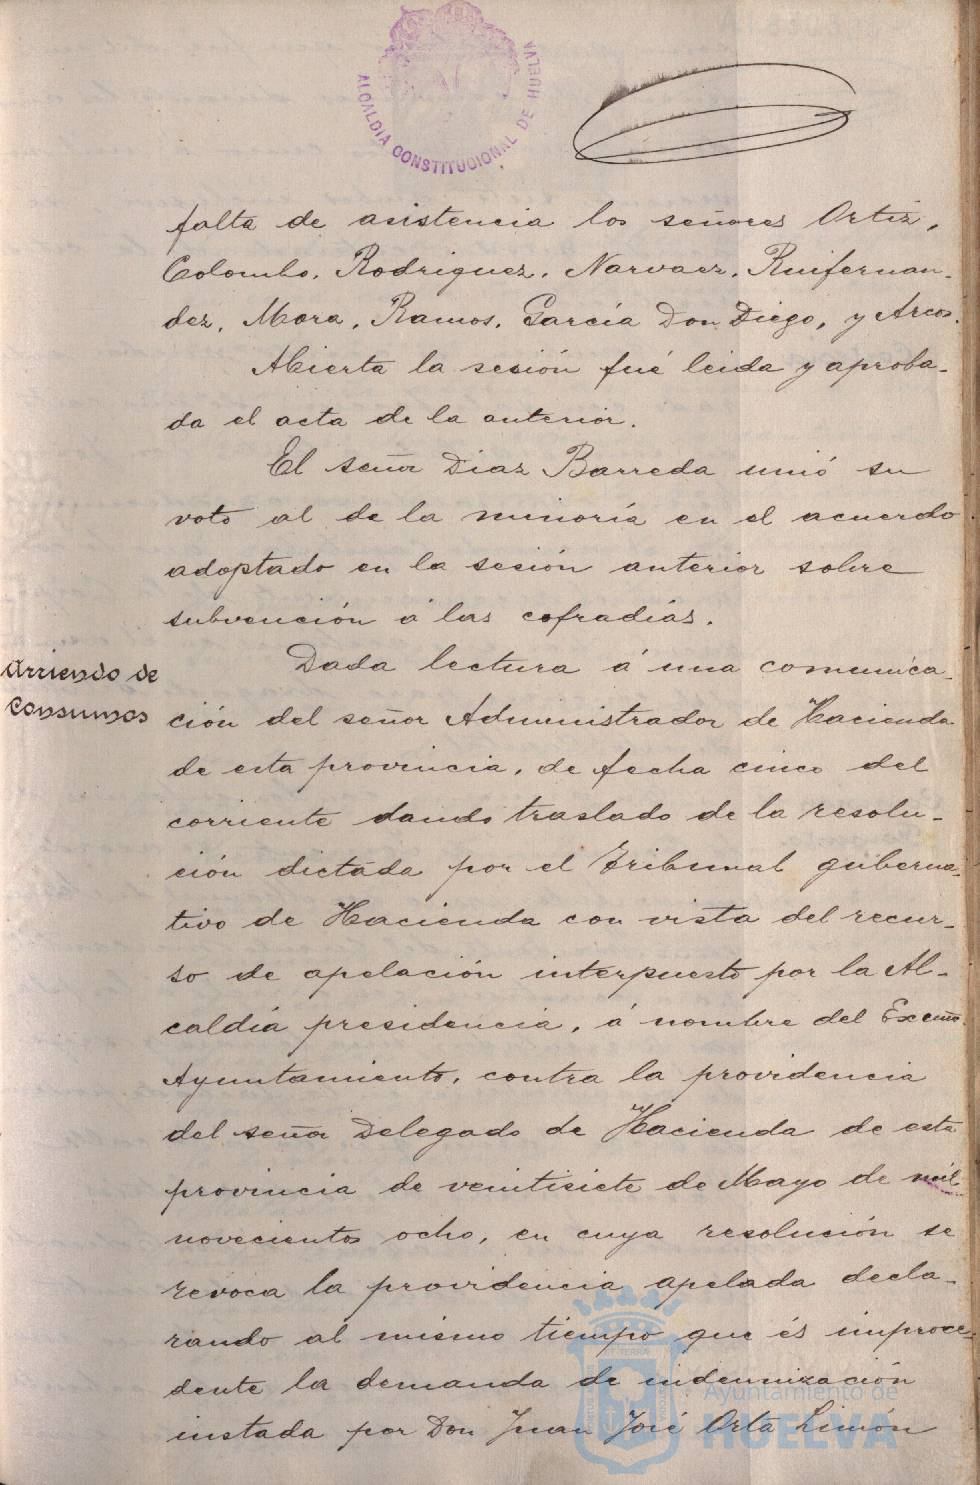 ALCALDÍA CONSTITUCIONAL DE HUELVA
falta de asistencia los señores Ortiz,
Colombo, Rodriguez, Narvaez, Ruifernan-
dez, Mora, Ramos, García Don Diego, y Arcos.
Abierta la sesión fué leida y aproba-
da el acta de la anterior.
El señor Diaz Barreda unió su
voto al de la minoría en el acuerdo
adoptado en la sesión anterior sobre
subvención á las cofradías.
Arriendo de
Consumos
Dada lectura á una comunica-
ción del señor Administrador de Hacienda
de esta provincia, de fecha cinco del
corriente dando traslado de la resolu-
ción dictada por el Tribunal guberna-
tivo de Hacienda con vista del recur-
so de apelación interpuesto por la Al-
caldía presidencia, á nombre del Excmo
Ayuntamiento, contra la providencia
del señor Delegado de Hacienda de esta
provincia de veintisiete de Mayo de mil
novecientos ocho, en cuya resolución se
revoca la providencia apelada decla-
rando al mismo tiempo que és improce-
dente la demanda de indemnización
instada por Don Juan José Orta Limón
Ayuntamiento de
HUELVA